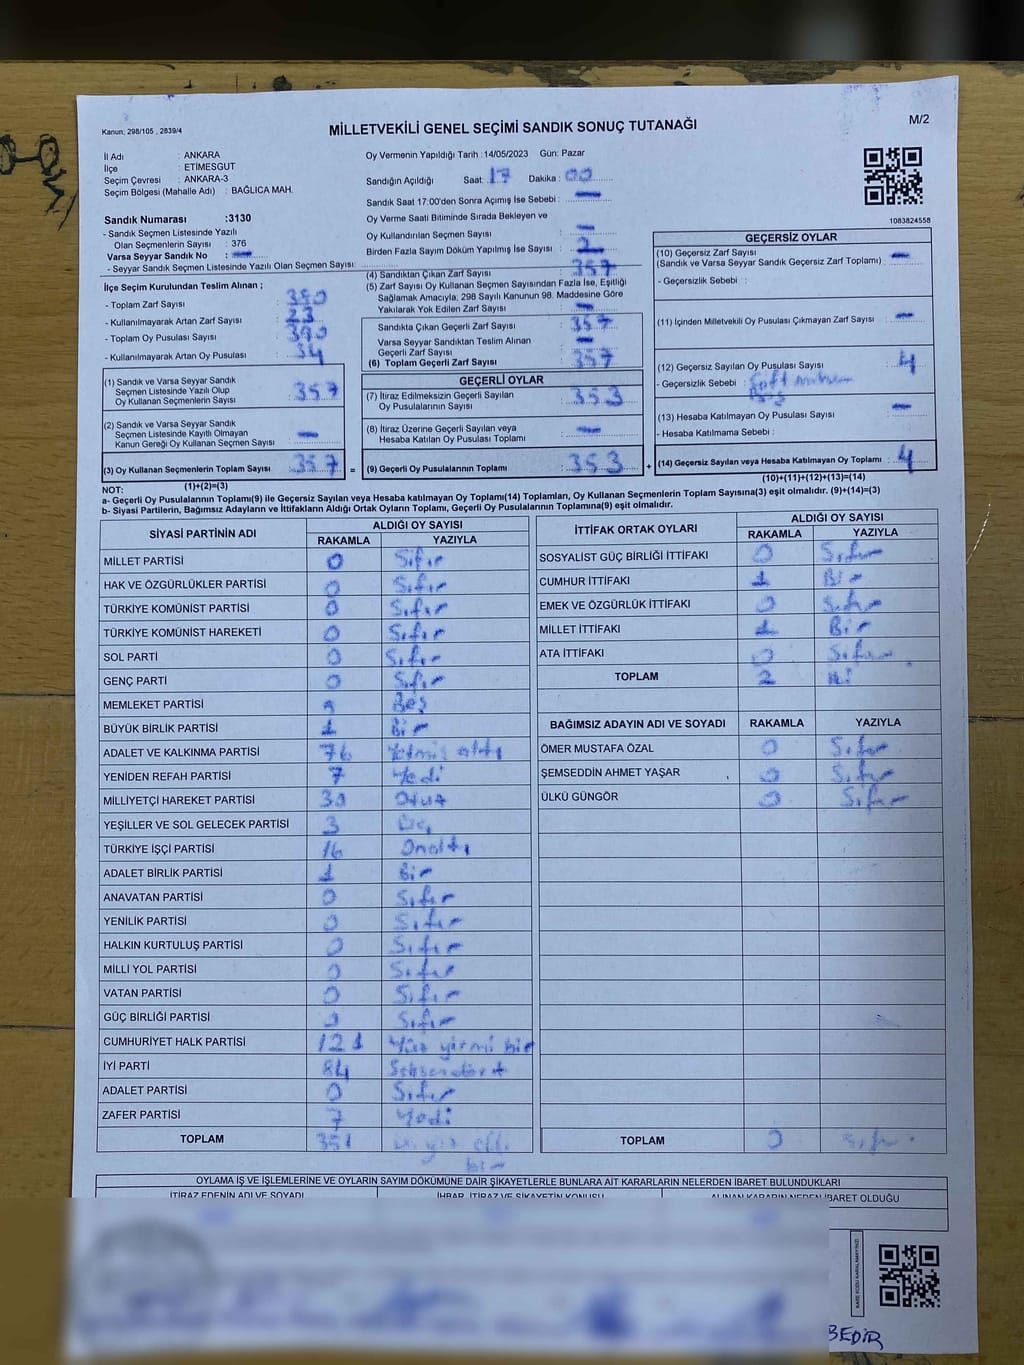 Kanun; 298/105 , 2839/4
MİLLETVEKİLİ GENEL SEÇİMİ SANDIK SONUÇ TUTANAĞI
M/2
İl Adı : ANKARA
İlçe : ETİMESGUT
Seçim Çevresi : ANKARA-3
Seçim Bölgesi (Mahalle Adı) : BAĞLICA MAH.
Sandık Numarası :3130
- Sandık Seçmen Listesinde Yazılı
Olan Seçmenlerin Sayısı : 376
Varsa Seyyar Sandık No : —
- Seyyar Sandık Seçmen Listesinde Yazılı Olan Seçmen Sayısı:
Oy Vermenin Yapıldığı Tarih :14/05/2023 Gün: Pazar
Sandığın Açıldığı Saat: 17 Dakika : 00
Sandık Saat 17:00'den Sonra Açımış İse Sebebi : —
Oy Verme Saati Bitiminde Sırada Bekleyen ve
Oy Kullandırılan Seçmen Sayısı : —
Birden Fazla Sayım Döküm Yapılmış İse Sayısı : 2
1083824558
İlçe Seçim Kurulundan Teslim Alınan ;
- Toplam Zarf Sayısı : 380
- Kullanılmayarak Artan Zarf Sayısı : 23
- Toplam Oy Pusulası Sayısı : 390
- Kullanılmayarak Artan Oy Pusulası : 34
(1) Sandık ve Varsa Seyyar Sandık
Seçmen Listesinde Yazılı Olup
Oy Kullanan Seçmenlerin Sayısı : 357
(2) Sandık ve Varsa Seyyar Sandık
Seçmen Listesinde Kayıtlı Olmayan
Kanun Gereği Oy Kullanan Seçmen Sayısı : —
(3) Oy Kullanan Seçmenlerin Toplam Sayısı : 357 =
(1)+(2)=(3)
(4) Sandıktan Çıkan Zarf Sayısı : 357
(5) Zarf Sayısı Oy Kullanan Seçmen Sayısından Fazla İse, Eşitliği
Sağlamak Amacıyla; 298 Sayılı Kanunun 98. Maddesine Göre
Yakılarak Yok Edilen Zarf Sayısı : —
Sandıkta Çıkan Geçerli Zarf Sayısı : 357
Varsa Seyyar Sandıktan Teslim Alınan
Geçerli Zarf Sayısı : —
(6) Toplam Geçerli Zarf Sayısı : 357
GEÇERLİ OYLAR
(7) İtiraz Edilmeksizin Geçerli Sayılan
Oy Pusulalarının Sayısı : 353
(8) İtiraz Üzerine Geçerli Sayılan veya
Hesaba Katılan Oy Pusulası Toplamı : —
(9) Geçerli Oy Pusulalarının Toplamı : 353 +
GEÇERSİZ OYLAR
(10) Geçersiz Zarf Sayısı : —
(Sandık ve Varsa Seyyar Sandık Geçersiz Zarf Toplamı)
- Geçersizlik Sebebi :
(11) İçinden Milletvekili Oy Pusulası Çıkmayan Zarf Sayısı : —
(12) Geçersiz Sayılan Oy Pusulası Sayısı : 4
- Geçersizlik Sebebi : Çift
Boş
(13) Hesaba Katılmayan Oy Pusulası Sayısı : —
- Hesaba Katılmama Sebebi :
(14) Geçersiz Sayılan veya Hesaba Katılmayan Oy Toplamı : 4
(10)+(11)+(12)+(13)=(14)
NOT:
a- Geçerli Oy Pusulalarının Toplamı(9) ile Geçersiz Sayılan veya Hesaba katılmayan Oy Toplamı(14) Toplamları, Oy Kullanan Seçmenlerin Toplam Sayısına(3) eşit olmalıdır. (9)+(14)=(3)
b- Siyasi Partilerin, Bağımsız Adayların ve İttifakların Aldığı Ortak Oyların Toplamı, Geçerli Oy Pusulalarının Toplamına(9) eşit olmalıdır.
SİYASİ PARTİNİN ADI ALDIĞI OY SAYISI
RAKAMLA YAZIYLA
MİLLET PARTİSİ 0 Sıfır
HAK VE ÖZGÜRLÜKLER PARTİSİ 0 Sıfır
TÜRKİYE KOMÜNİST PARTİSİ 0 Sıfır
TÜRKİYE KOMÜNİST HAREKETİ 0 Sıfır
SOL PARTİ 0 Sıfır
GENÇ PARTİ 0 Sıfır
MEMLEKET PARTİSİ 5 Beş
BÜYÜK BİRLİK PARTİSİ 1 Bir
ADALET VE KALKINMA PARTİSİ 76 Yetmiş altı
YENİDEN REFAH PARTİSİ 7 Yedi
MİLLİYETÇİ HAREKET PARTİSİ 30 Otuz
YEŞİLLER VE SOL GELECEK PARTİSİ 3 Üç
TÜRKİYE İŞÇİ PARTİSİ 16 Onaltı
ADALET BİRLİK PARTİSİ 1 Bir
ANAVATAN PARTİSİ 0 Sıfır
YENİLİK PARTİSİ 0 Sıfır
HALKIN KURTULUŞ PARTİSİ 0 Sıfır
MİLLİ YOL PARTİSİ 0 Sıfır
VATAN PARTİSİ 0 Sıfır
GÜÇ BİRLİĞİ PARTİSİ 0 Sıfır
CUMHURİYET HALK PARTİSİ 121 Yüz yirmi bir
İYİ PARTİ 84 Seksendört
ADALET PARTİSİ 0 Sıfır
ZAFER PARTİSİ 7 Yedi
TOPLAM 351 Üç yüz elli
bir
İTTİFAK ORTAK OYLARI ALDIĞI OY SAYISI
RAKAMLA YAZIYLA
SOSYALİST GÜÇ BİRLİĞİ İTTİFAKI 0 Sıfır
CUMHUR İTTİFAKI 1 Bir
EMEK VE ÖZGÜRLÜK İTTİFAKI 0 Sıfır
MİLLET İTTİFAKI 1 Bir
ATA İTTİFAKI 0 Sıfır
TOPLAM 2 iki
BAĞIMSIZ ADAYIN ADI VE SOYADI RAKAMLA YAZIYLA
ÖMER MUSTAFA ÖZAL 0 Sıfır
ŞEMSEDDİN AHMET YAŞAR 0 Sıfır
ÜLKÜ GÜNGÖR 0 Sıfır
TOPLAM 0 Sıfır
OYLAMA İŞ VE İŞLEMLERİNE VE OYLARIN SAYIM DÖKÜMÜNE DAİR ŞİKAYETLERLE BUNLARA AİT KARARLARIN NELERDEN İBARET BULUNDUKLARI
İTİRAZ EDENİN ADI VE SOYADI İHBAR, İTİRAZ VE ŞİKAYETİN KONUSU ALINAN KARARIN NEDEN İBARET OLDUĞU
BEDİR